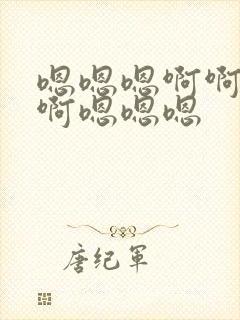 嗯嗯嗯啊啊
啊嗯嗯嗯
唐纪军